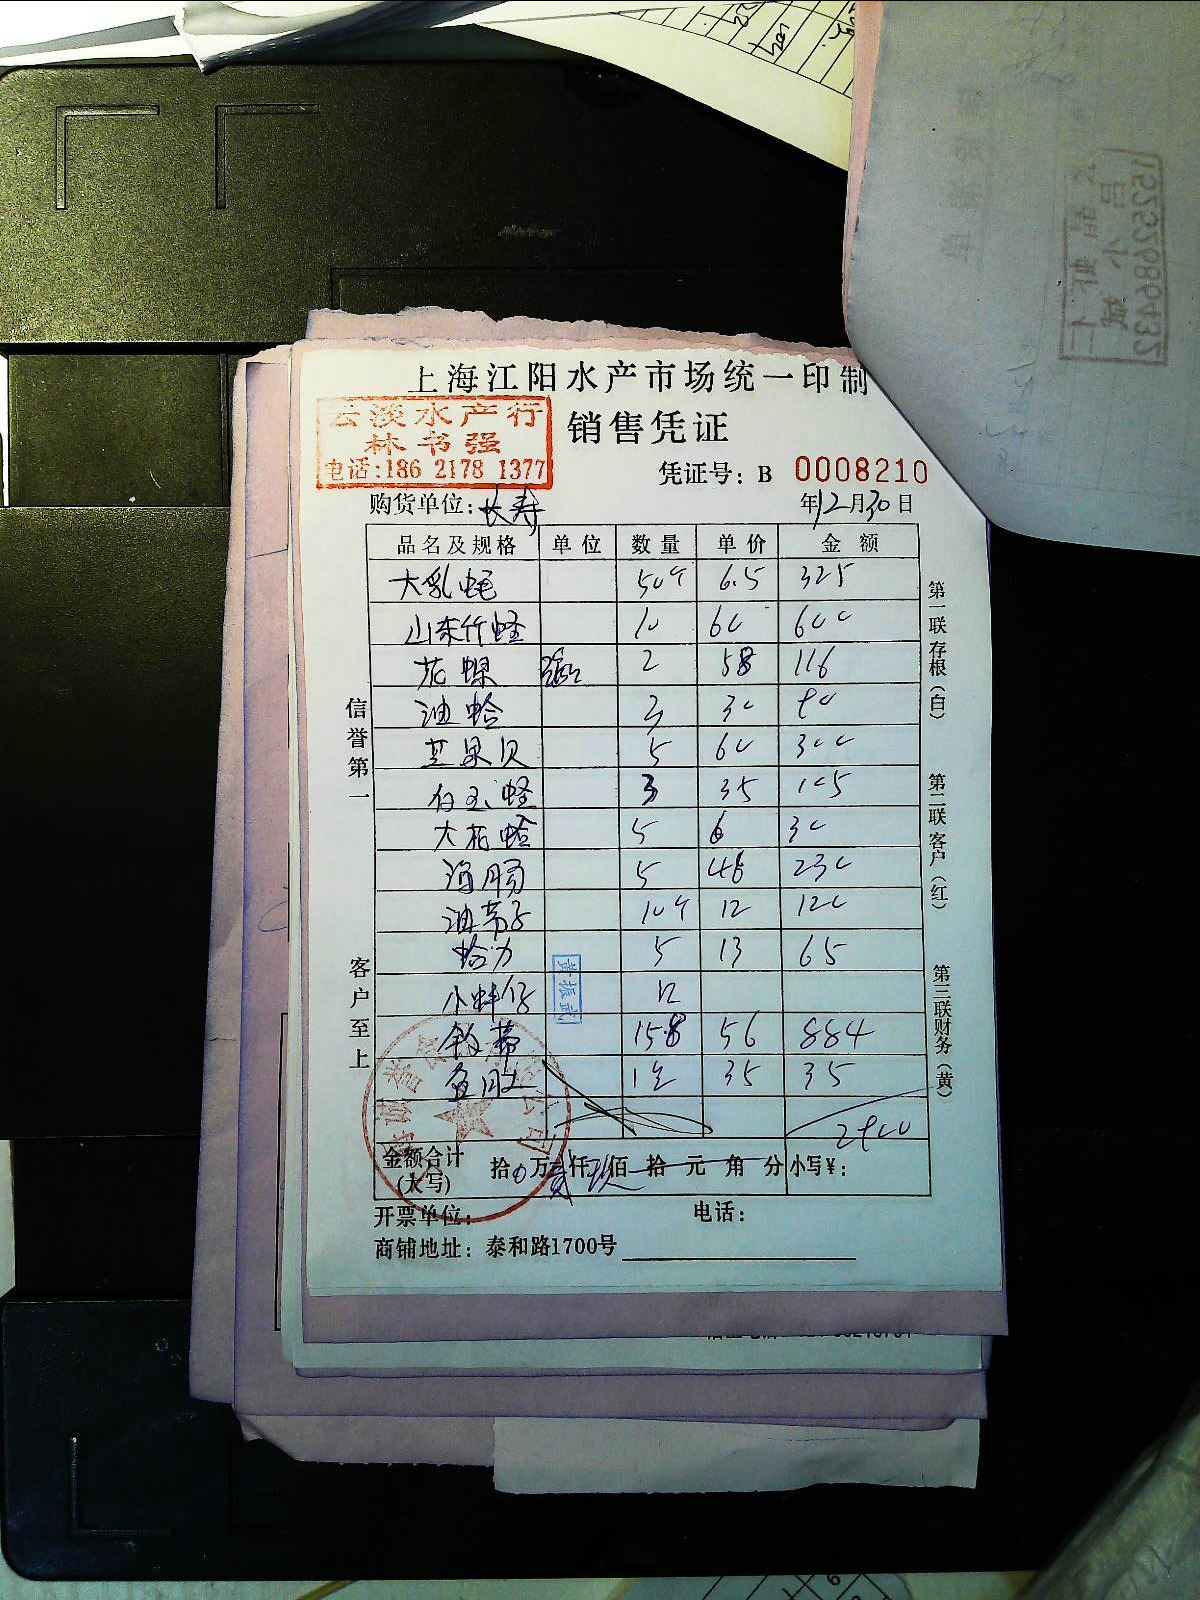 上海江阳水产市场统一印制
云淡水产行
林书强
电话:186 2178 1377
销售凭证
凭证号: B 0008210
购货单位: 长寿 年12月30日
品名及规格 单位 数量 单价 金额
大乳蚝 50个 6.5 325
山东竹蛏 10 60 600
花螺 2 58 116
油蛤 3 30 90
芒果贝 5 60 300
白玉蛏 3 35 105
大花蛤 5 6 30
海肠 5 46 230
油带子 10个 12 120
蛤力 5 13 65
小蚌仔 12
黄振武
鲜带 15.8 56 884
鱼肚 1 35 35
2900
金额合计(大写) 拾0万贰仟玖佰拾元角分 小写¥:
开票单位: 电话:
商铺地址: 泰和路1700号
信誉第一
客户至上
第一联存根(白)
第二联客户(红)
第三联财务(黄)
15252686432
吕小斌